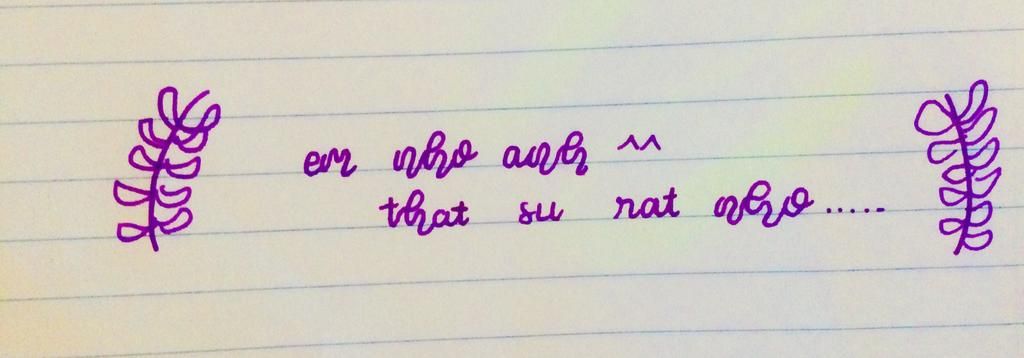 em nho anh ^^
that su rat nho.....